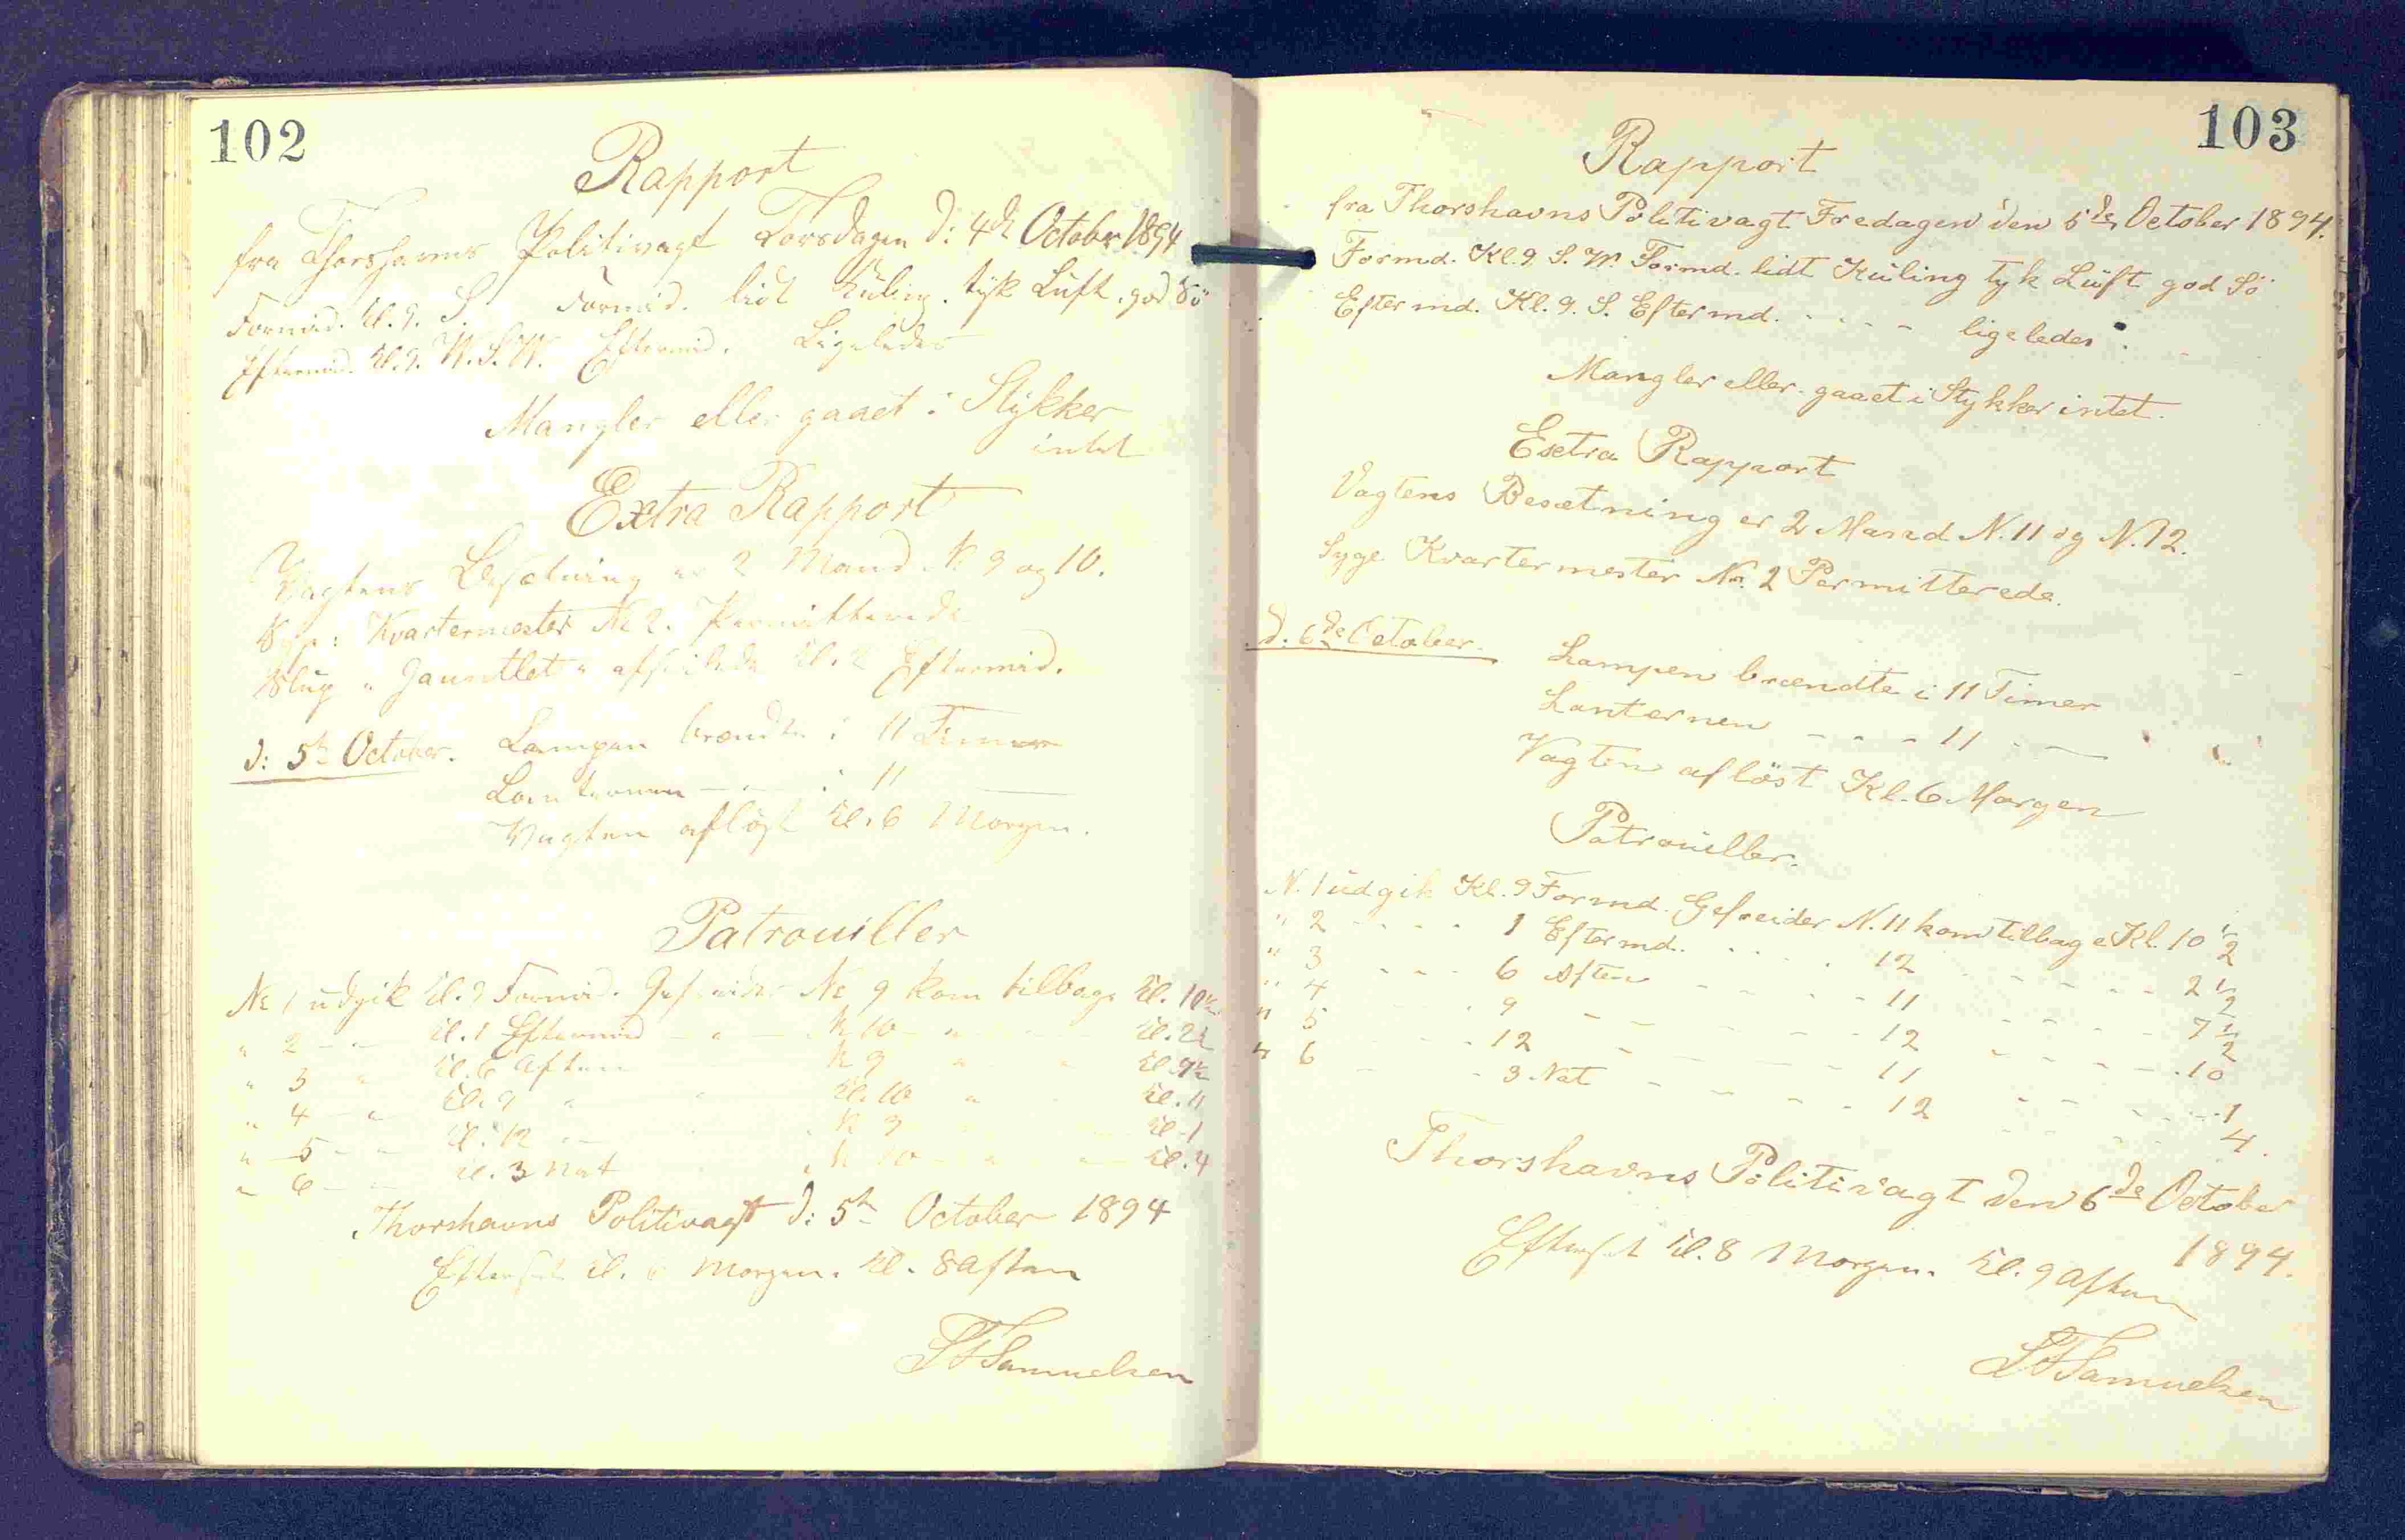 102
Rapport
fra Thorshavns Politivagt Torsdagen d: 4de October 1894
Formid. Kl. 9. S Formid. lidt Kuling. tyk Luft. god Sö
Eftermid. Kl. 9. W.S.W. Eftermid. Ligeledes
Mangler eller gaaet i Stykker
intet
Extra Rapport
Vagtens Besætning er 2 Mand № 9 og 10.
Syge: Kvartermester № 2. Permitterede
Slup „Gauntlet“ afseilede Kl. 2 Eftermid.
d: 5te October. Lampen brændte i 11 Timer
Lanternen — " — i 11 —
Vagten aflöst Kl. 6 Morgen.
Patrouiller
№ 1 udgik Kl. 9 Formid. Gefreider № 9 kom tilbage Kl. 10½
" 2 - " - Kl. 1 Eftermid — " — № 10 - " - Kl. 2½
" 3 " Kl. 6 Aften № 9 " " Kl. 7½
" 4 - " Kl. 9 " " № 10 " Kl. 11
" 5 - " Kl. 12 " № 9 Kl. 1
" 6 - Kl. 3 Nat " № 10 - " - Kl. 4
Thorshavns Politivagt d: 5te October 1894
Efterset Kl. Morgen. Kl. 8 Aften
Samuelsen
103
Rapport
fra Thorshavns Politivagt Fredagen den 5de October 1894.
Formd. Kl. 9. S.W. Formd. lidt Kuling tyk Luft god Sö
Eftermd. Kl. 9. S. Eftermd. - - - - ligeledes.
Mangler eller gaaet i Stykker intet.
Extra Rapport
Vagtens Besætning er 2 Mand N. 11 og N. 12.
Syge Kvartermester Nr. 2 Permitterede.
d. 6de October. Lampen brændte i 11 Timer
Lanternen - - - 11 - —
Vagten aflöst Kl. 6 Morgen
Patrouiller.
N. 1 udgik Kl. 9 Formd. Gefreider N. 11 kom tilbage Kl. 10 ½
" 2 - - - - 1 Eftermd. - - - - 12 - - - - 2 ½
" 3 - - - 6 Aften - - - - 11 - - - - 7 ½
" 4 - - - 9 - - - - 12 - - - - 10
" 5 - - - 12 - - - - 11 - - - - 1
" 6 - - - 3 Nat - - - - 12 - - - - 4.
Thorshavns Politivagt den 6de October
1894.
Efterset Kl. 8 Morgen. Kl. 9 Aften
Samuelsen